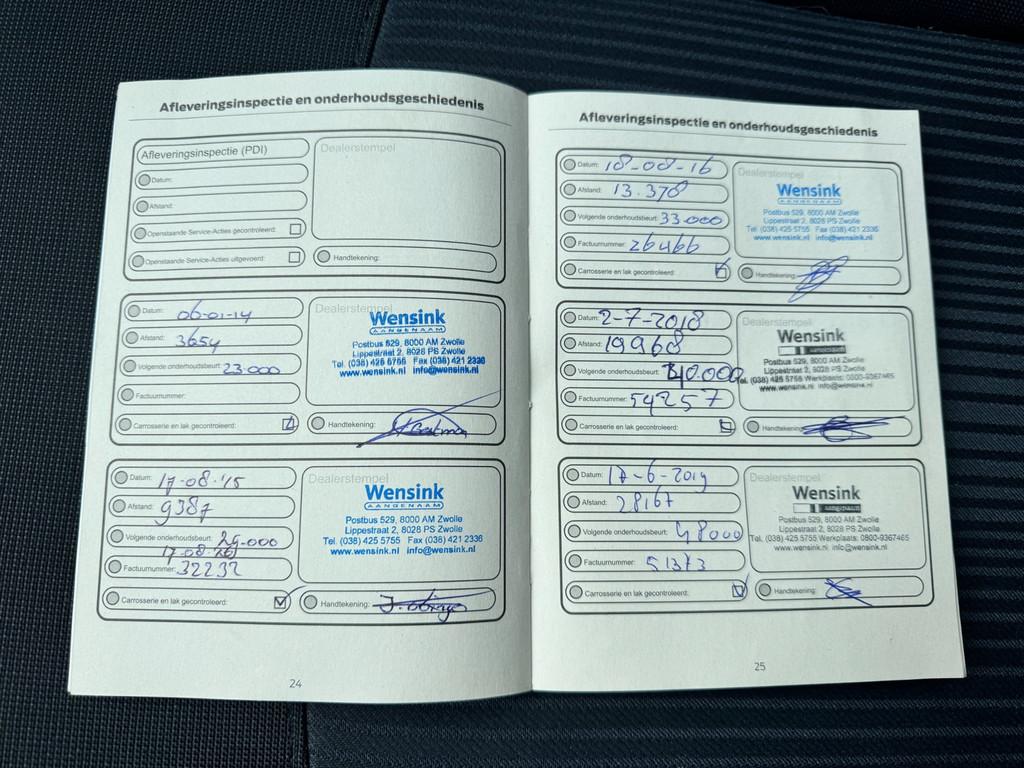 Afleveringsinspectie en onderhoudsgeschiedenis
Afleveringsinspectie (PDI)
Dealerstempel
Datum:
Afstand:
Openstaande Service-Acties gecontroleerd:
Openstaande Service-Acties uitgevoerd:
Handtekening:
Datum: 06-01-14
Afstand: 3654
Volgende onderhoudsbeurt: 23.000
Factuurnummer:
Carrosserie en lak gecontroleerd:
Dealerstempel
Wensink
AANGENAAM
Postbus 529, 8000 AM Zwolle
Lippestraat 2, 8028 PS Zwolle
Tel. (038) 425 5755 Fax (038) 421 2336
www.wensink.nl info@wensink.nl
Handtekening:
Datum: 17-08-'15
Afstand: 9387
Volgende onderhoudsbeurt: 29.000
17-08-'16
Factuurnummer: 32232
Carrosserie en lak gecontroleerd:
Dealerstempel
Wensink
AANGENAAM
Postbus 529, 8000 AM Zwolle
Lippestraat 2, 8028 PS Zwolle
Tel. (038) 425 5755 Fax (038) 421 2336
www.wensink.nl info@wensink.nl
Handtekening:
24
Afleveringsinspectie en onderhoudsgeschiedenis
Datum: 18-08-16
Afstand: 13.378
Volgende onderhoudsbeurt: 33.000
Factuurnummer: 26466
Carrosserie en lak gecontroleerd:
Dealerstempel
Wensink
AANGENAAM
Postbus 529, 8000 AM Zwolle
Lippestraat 2, 8028 PS Zwolle
Tel. (038) 425 5755 Fax (038) 421 2336
www.wensink.nl info@wensink.nl
Handtekening:
Datum: 2-7-2018
Afstand: 19968
Volgende onderhoudsbeurt: 40.000
Factuurnummer: 54257
Carrosserie en lak gecontroleerd:
Dealerstempel
Wensink
Postbus 529, 8000 AM Zwolle
Lippestraat 2, 8028 PS Zwolle
Tel. (038) 425 5755 Werkplaats: 0800-9367465
www.wensink.nl info@wensink.nl
Handtekening:
Datum: 17-6-2019
Afstand: 28167
Volgende onderhoudsbeurt: 48000
Factuurnummer: 51373
Carrosserie en lak gecontroleerd:
Dealerstempel
Wensink
aangenaam
Postbus 529, 8000 AM Zwolle
Lippestraat 2, 8028 PS Zwolle
Tel. (038) 425 5755 Werkplaats: 0800-9367465
www.wensink.nl info@wensink.nl
Handtekening:
25